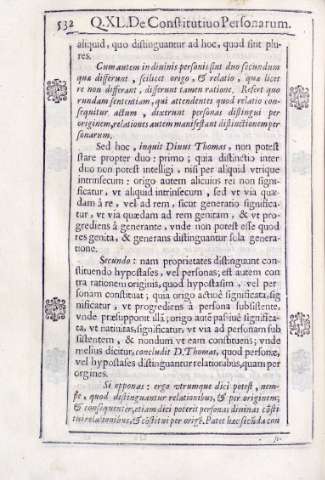 532 Q.XL.De Constitutiuo Personarum.
aliquid, quo distinguantur ad hoc, quod sint plu-
res.
Cum autem in diuinis personis sint duo secundum
quæ differunt, scilicet origo, & relatio, quæ licet
re non differant, differunt tamen ratione. Refert quo
rundam sententiam, qui attendentes quod relatio con-
sequitur actum, dixerunt personas distingui per
originem, relationes autem manifestant distinctionem per
sonarum.
Sed hoc, inquit Diuus Thomas, non potest
stare propter duo: primo; quia distinctio inter
duo non potest intelligi, nisi per aliquid vtrique
intrinsecum: origo autem alicuius rei non signi-
ficatur, vt aliquid intrinsecum, sed vt via quæ-
dam à re, vel ad rem, sicut generatio significa-
tur, vt via quædam ad rem genitam, & vt pro-
grediens à generante, vnde non potest esse quod
res genita, & generans distinguantur sola genera-
tione.
Secundo: nam proprietates distinguunt con-
stituendo hypostases, vel personas; est autem con
tra rationem originis, quod hypostasim, vel per-
sonam constituat; quia origo actiuè significata, sig
nificatur, vt progrediens à persona subsistente,
vnde præsupponit illã; origo autē pasiuè significa-
ta, vt natiuitas, significatur, vt via ad personam sub
sistentem, & nondum vt eam constituens; vnde
melius dicitur, concludit D.Thomas, quod personæ,
vel hypostases distinguantur relationibus, quam per
orgines.
Si opponas: ergo vtrumque dici potest, nem-
pe, quod distinguantur relationibus, & per originem;
& consequenter, etiam dici poterit personas diuinas cōsti
tui relationibus, & cōstitui per origē. Patet hæc secūda con